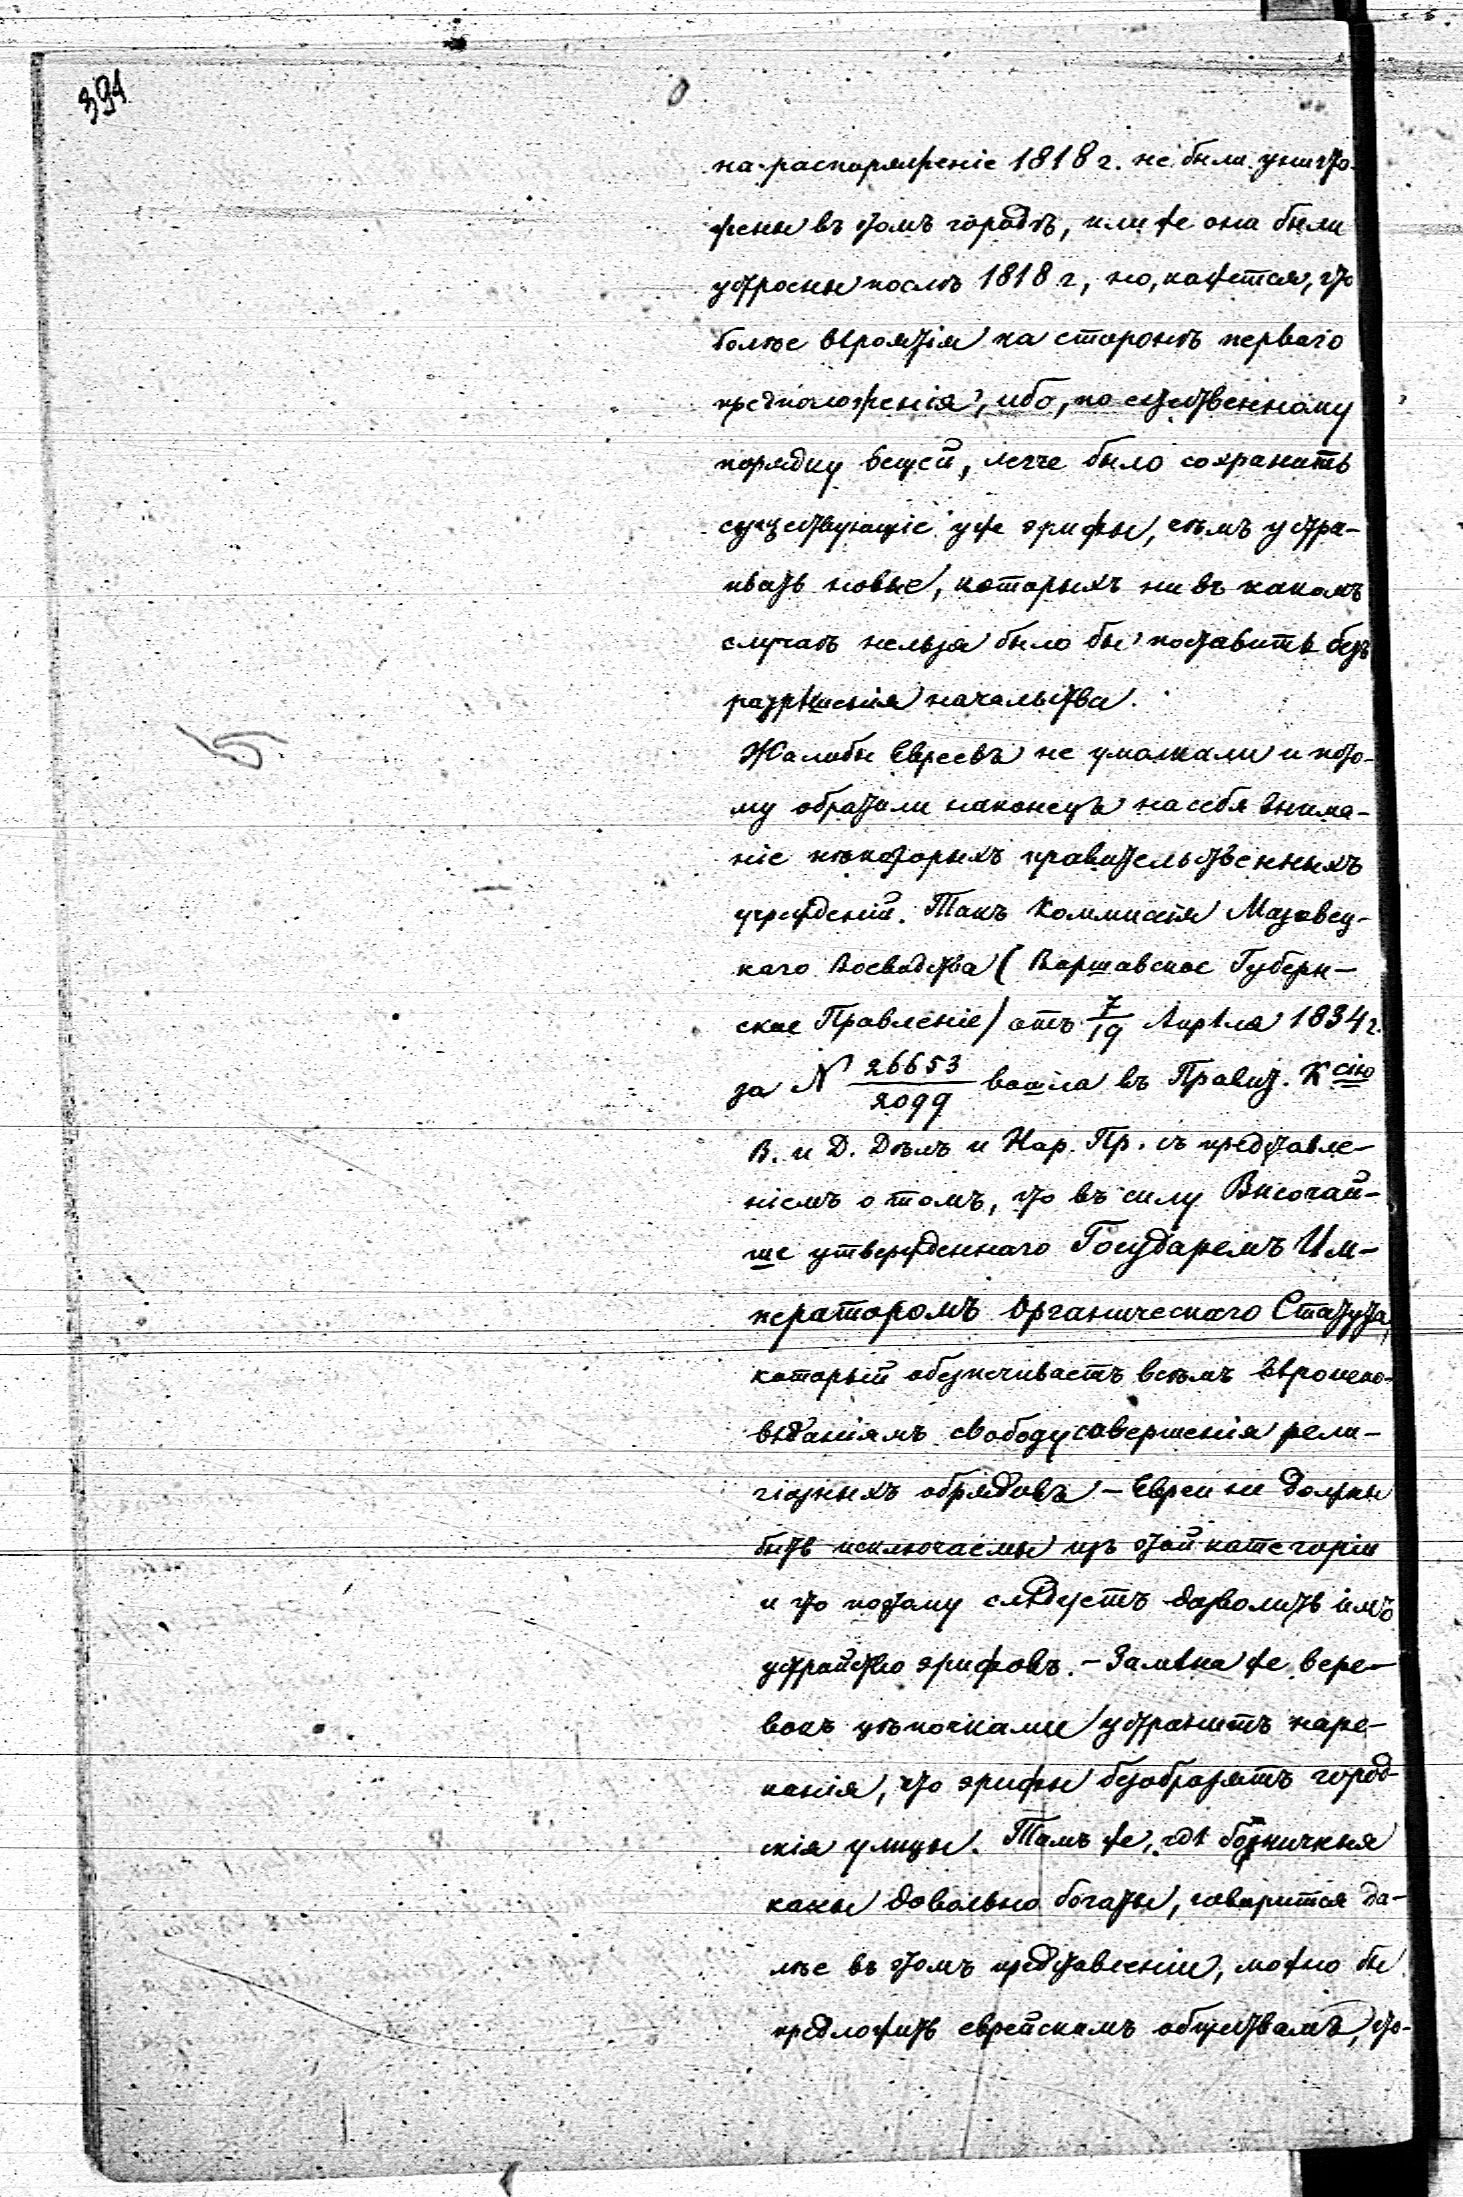 394
на распоряженіе 1818 г. не были уничто-
жены въ этомъ городѣ, или же они были
устроены послѣ 1818 г, но, кажется, что
болѣе вѣроятія на сторонѣ перваго
предположенія, ибо, по естественному
порядку вещей, легче было сохранить
существующіе уже эрифы, чѣмъ устра-
ивать новые, которыхъ ни въ какомъ
случаѣ нельзя было бы поставить безъ
разрѣшенія начальства.
Жалобы Евреевъ не умолкали и пото-
му обратили наконецъ на себя внима-
ніе нѣкоторыхъ правительственныхъ
учрежденій. Такъ Коммисія Мазовец-
каго Воеводства (Варшавское Губерн-
ское Правленіе) отъ 7/19 Апрѣля 1834 г.
за № 26653/2099 вошла въ Правит. Ксію
В. и Д. Дѣлъ и Нар. Пр. съ представле-
ніемъ о томъ, что въ силу Высочай-
ше утвержденнаго Государемъ Им-
ператоромъ Органическаго Статута,
который обезпечиваетъ всѣмъ вѣроиспо-
вѣданіямъ свободу совершенія рели-
гіозныхъ обрядовъ – Евреи не должны
быть исключаемы изъ этой категоріи
и что потому слѣдуетъ дозволить имъ
устройство эрифовъ. – Замѣна же вере-
вокъ цѣпочками устранитъ наре-
канія, что эрифы безобразятъ город-
скія улицы. Тамъ же, гдѣ божничныя
кассы довольно богаты, говорится да-
лѣе въ этомъ представленіи, можно бы
предложить еврейскимъ обществамъ, что-